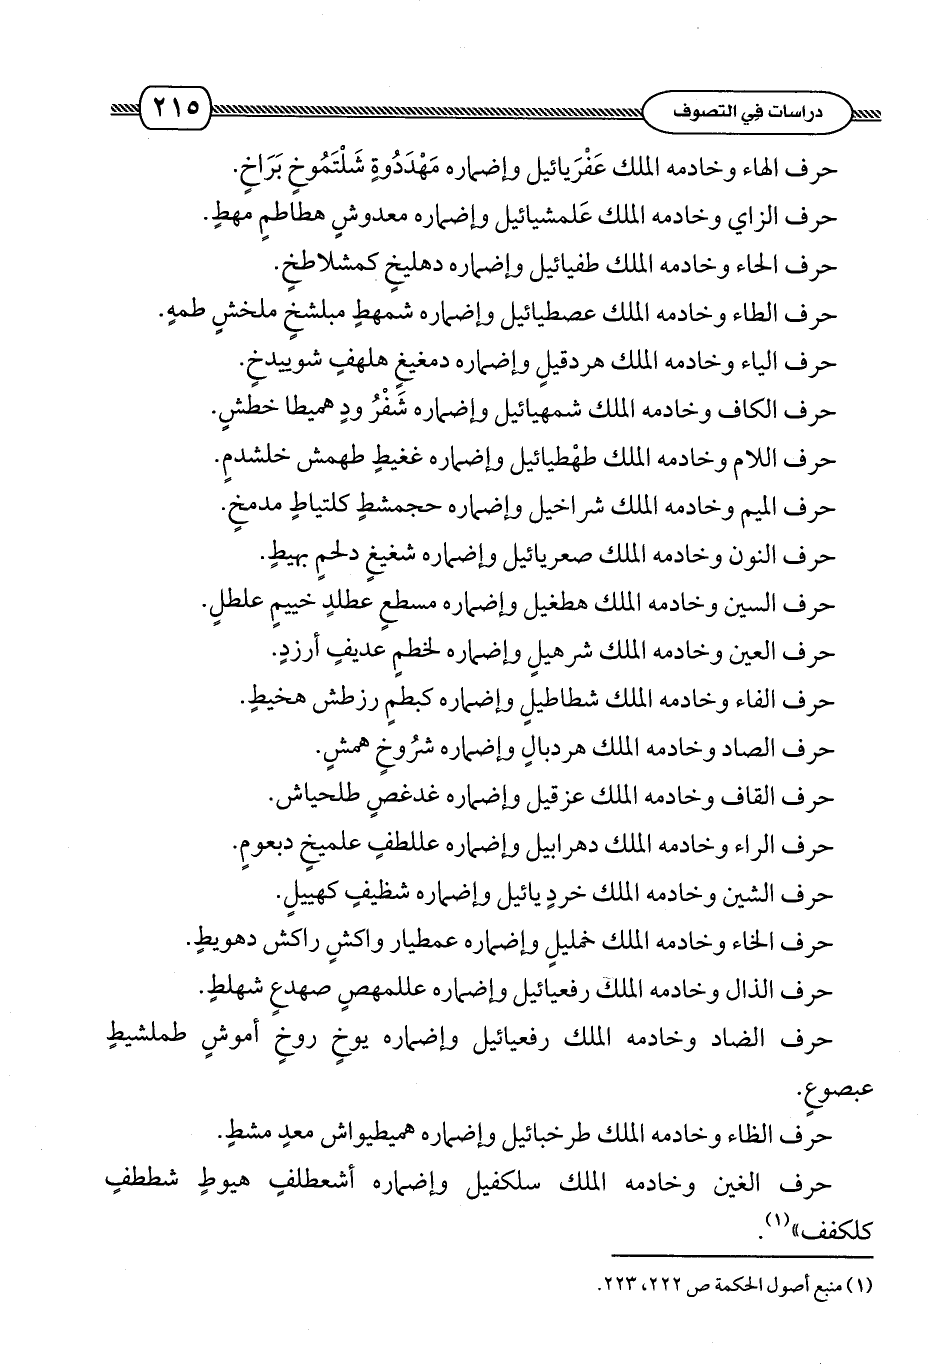 دراسات في التصوف
٢١٥
حرف الهاء وخادمه الملك عَفْرَيائيل وإضماره مَهْدَدُوةٍ شَلْتَمُوخٍ بَرَاخٍ.
حرف الزاي وخادمه الملك عَلمشيائيل وإضماره معدوشٍ هطاطمٍ مهطٍ.
حرف الحاء وخادمه الملك طفيائيل وإضماره دهليخٍ كمشلاطخٍ.
حرف الطاء وخادمه الملك عصطيائيل وإضماره شمهطٍ مبلشخٍ ملخشٍ طمهٍ.
حرف الياء وخادمه الملك هردقيلٍ وإضماره دمغيغٍ هلهفٍ شوييدخٍ.
حرف الكاف وخادمه الملك شمهيائيل وإضماره شَفْرُ ودٍ هميطا خطشٍ.
حرف اللام وخادمه الملك طهْطيائيل وإضماره غغيطٍ طهمش خلشدمٍ.
حرف الميم وخادمه الملك شراخيل وإضماره حجمشطٍ كلتياطٍ مدمخٍ.
حرف النون وخادمه الملك صعريائيل وإضماره شغيغٍ دلحمٍ بهيطٍ.
حرف السين وخادمه الملك هطغيل وإضماره مسطعٍ عطلدٍ خييمٍ علطلٍ.
حرف العين وخادمه الملك شرهيلٍ وإضماره لخطمٍ عديفٍ أرزدٍ.
حرف الفاء وخادمه الملك شطاطيلٍ وإضماره كبطمٍ رزطش هخيطٍ.
حرف الصاد وخادمه الملك هردبالٍ وإضماره شرُوخٍ همشٍ.
حرف القاف وخادمه الملك عزقيل وإضماره غدغصٍ طلحياش.
حرف الراء وخادمه الملك دهرابيل وإضماره عللطفٍ علميخٍ دبعومٍ.
حرف الشين وخادمه الملك خردٍيائيل وإضماره شظيفٍ كهييلٍ.
حرف الخاء وخادمه الملك خمليلٍ وإضماره عمطيار واكشٍ راكش دهويطٍ.
حرف الذال وخادمه الملك رفعيائيل وإضماره عللمهصٍ صهدعٍ شهلطٍ.
حرف الضاد وخادمه الملك رفعيائيل وإضماره يوخٍ روخٍ أموشٍ طملشيطٍ
عبصوعٍ.
حرف الظاء وخادمه الملك طرخبائيل وإضماره هميطيواش معدٍ مشطٍ.
حرف الغين وخادمه الملك سلكفيل وإضماره أشعطلفٍ هيوطٍ شططفٍ
كلكفف»(١).
(١) منبع أصول الحكمة ص ٢٢٢، ٢٢٣.